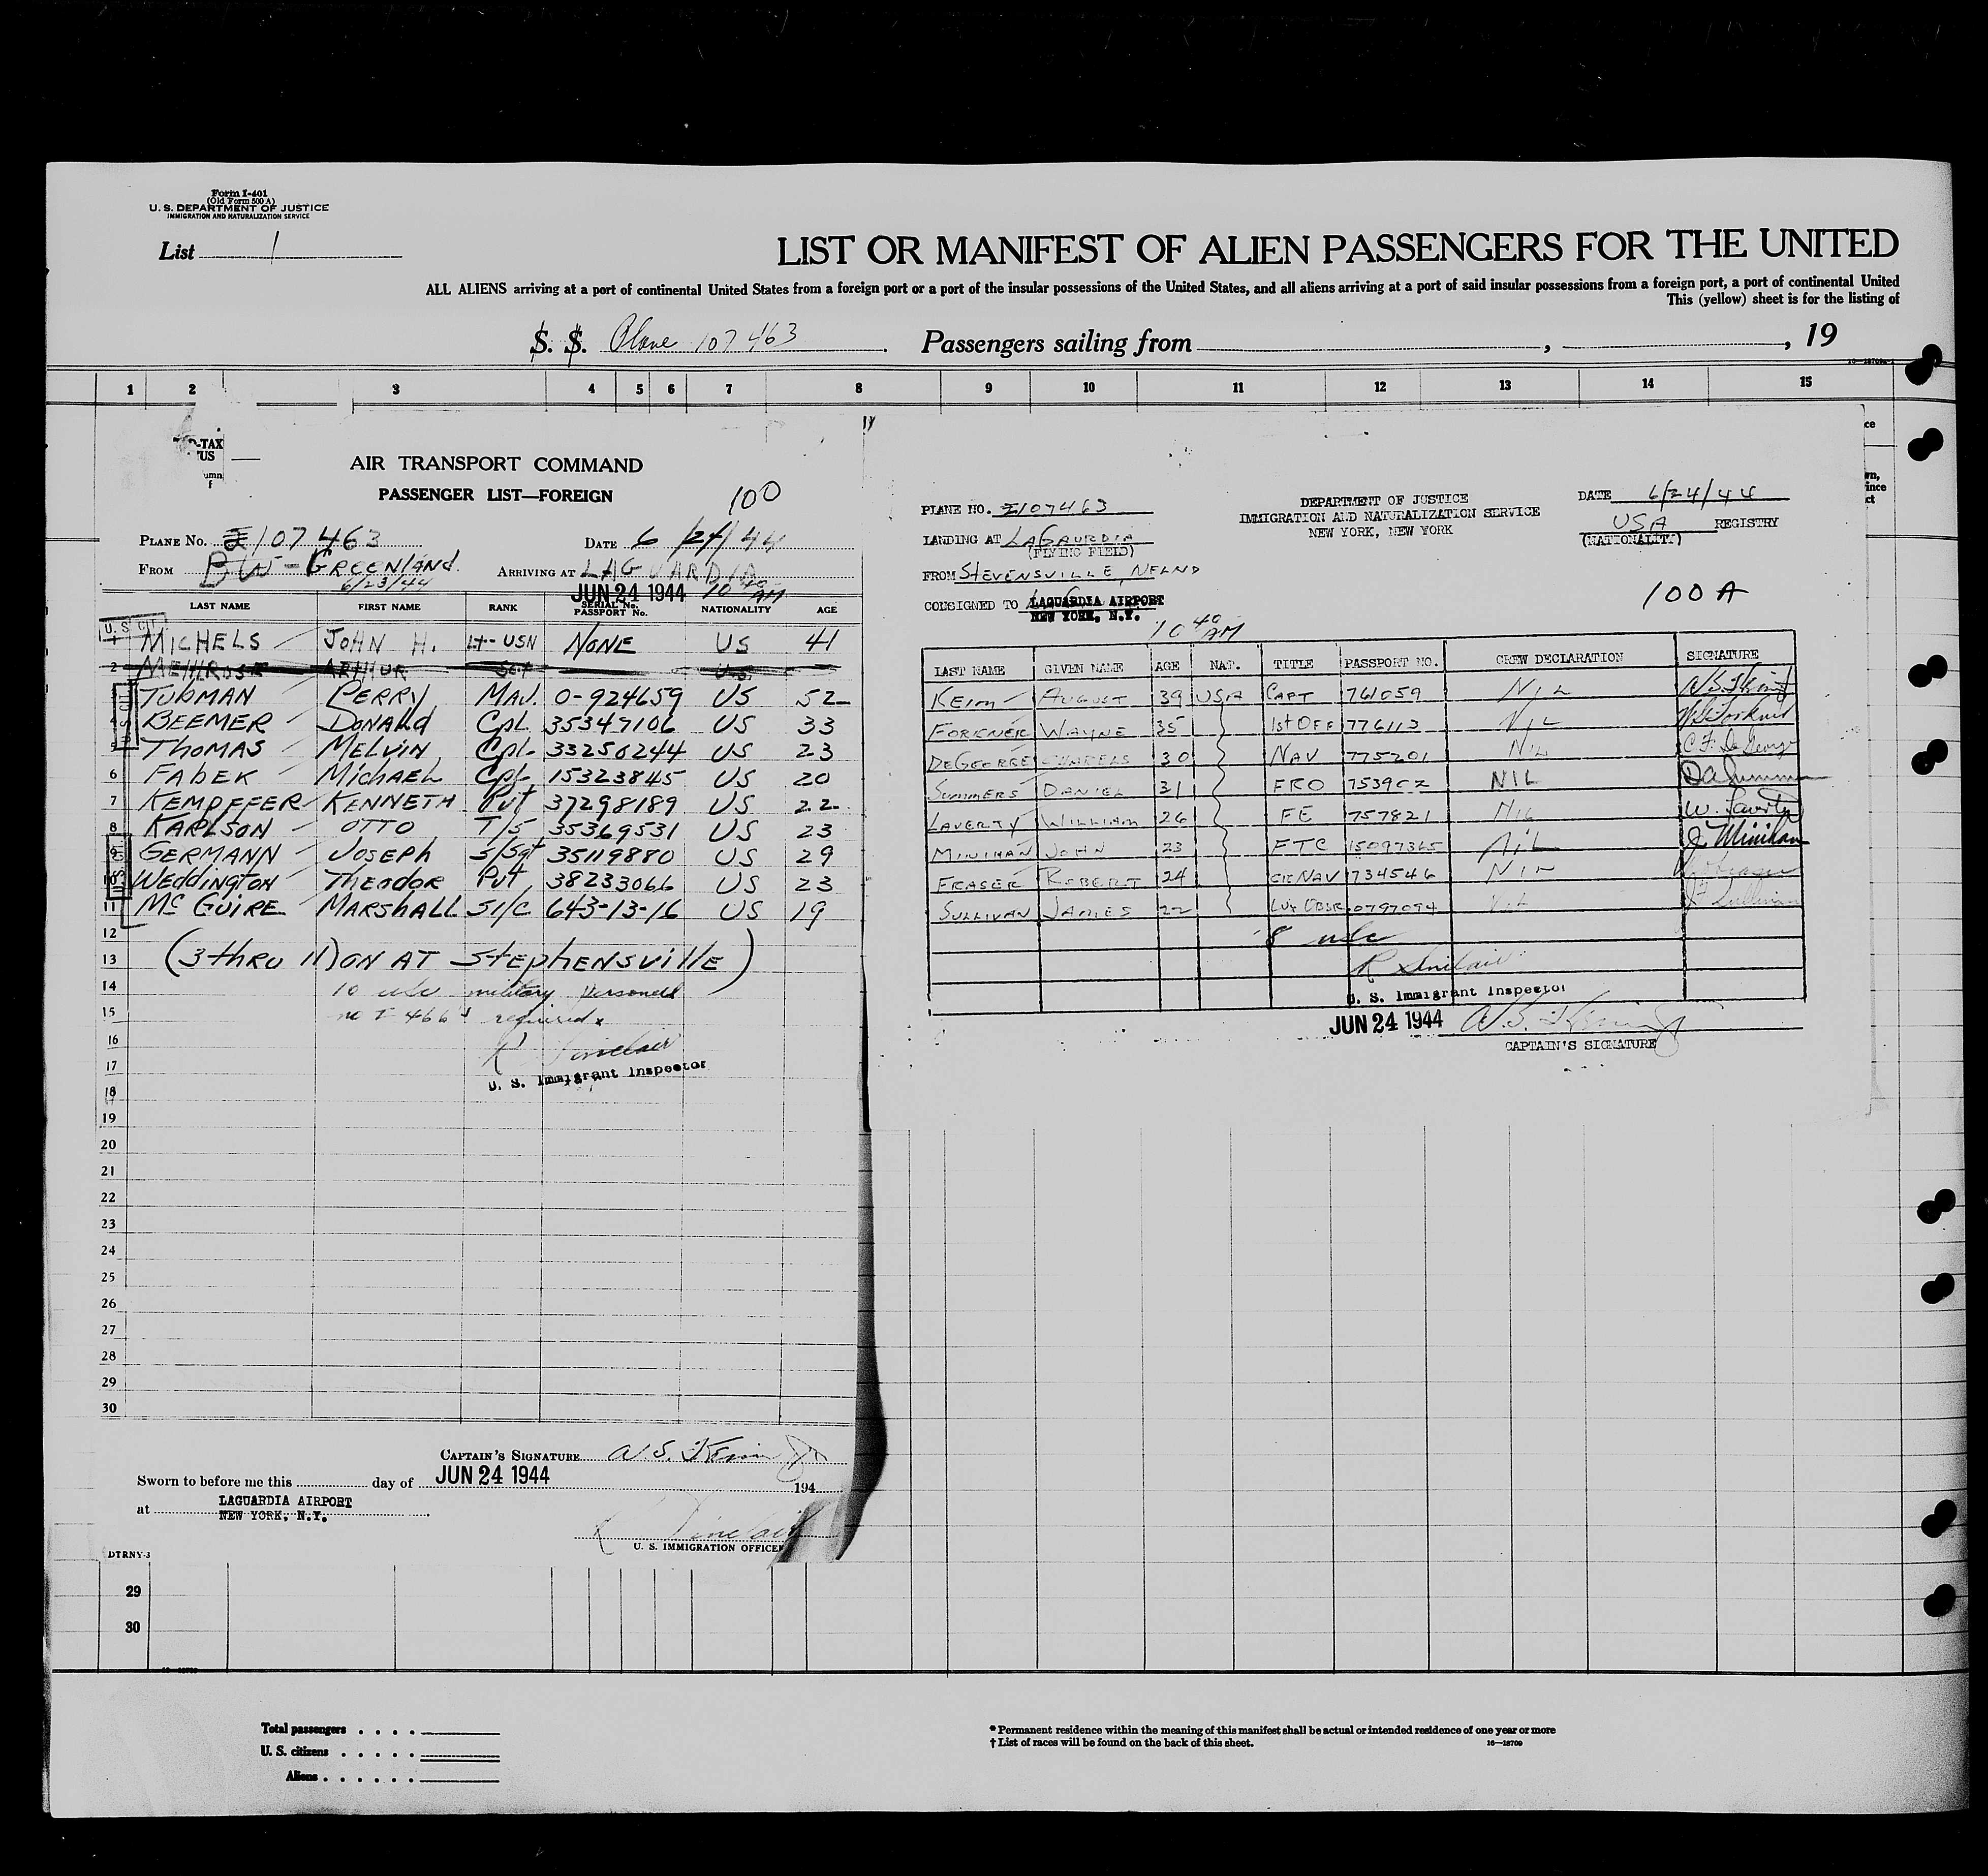 Form I-401
(Old Form 500 A)
U. S. DEPARTMENT OF JUSTICE
IMMIGRATION AND NATURALIZATION SERVICE
List 1
LIST OR MANIFEST OF ALIEN PASSENGERS FOR THE UNITED
ALL ALIENS arriving at a port of continental United States from a foreign port or a port of the insular possessions of the United States, and all aliens arriving at a port of said insular possessions from a foreign port, a port of continental United
This (yellow) sheet is for the listing of
S. S. Plane 107463 Passengers sailing from , , 19
1 2 3 4 5 6 7 8 9 10 11 12 13 14 15
AIR TRANSPORT COMMAND
PASSENGER LIST—FOREIGN
100
PLANE No. 107463 DATE 6/24/44
FROM BW-GREENLAND. ARRIVING AT LAGUARDIA
6/23/44
JUN 24 1944 10 40 AM
LAST NAME FIRST NAME RANK SERIAL No. PASSPORT No. NATIONALITY AGE
U.S. CIT.
1 MICHELS JOHN H. Lt- USN NONE US 41
2 ARTHUR Sgt U.S.
TURMAN PERRY MAJ. 0-924659 US 52
BEEMER DONALd CpL 35347106 US 33
5 THOMAS MELVIN Cpl- 33250244 US 23
6 FAbEK MichAEL Cpl- 15323845 US 20
7 KEMPFFER KENNETH Pvt 37298189 US 22
8 KARLSON OTTO T/5 35369531 US 23
9 GERMANN JOSEPh S/Sgt 35119880 US 29
10 WEddINGTON THEODOR Pvt 38233066 US 23
11 McGUIRE MARSHALL S1/C 643-13-16 US 19
12
13 (3 thRU 11) ON AT StEphENSVillE)
14 10 usc military personel
15 no I 466's required
16 R Sinclair
17 U. S. Immigrant Inspector
18
19
20
21
22
23
24
25
26
27
28
29
30
CAPTAIN'S SIGNATURE
Sworn to before me this day of JUN 24 1944 194
at LAGUARDIA AIRPORT
NEW YORK, N.Y.
R Sinclair
U. S. IMMIGRATION OFFICER
DTRNY-3
PLANE NO. 107463
DEPARTMENT OF JUSTICE
IMMIGRATION AND NATURALIZATION SERVICE
NEW YORK, NEW YORK
DATE 6/24/44
USA REGISTRY
(NATIONALITY)
LANDING AT LAGAURDIA
(FLYING FIELD)
FROM STEVENSVILLE, NFLND
CONSIGNED TO LAGUARDIA AIRPORT
NEW YORK, N.Y.
10 40 AM
100 A
LAST NAME GIVEN NAME AGE NAT. TITLE PASSPORT NO. CREW DECLARATION SIGNATURE
KEIM AUGUST 39 USA CAPT 761059 NIL
FORKNER WAYNE 35 1st OFF 776113 NIL
DEGEORGE CHARLES 30 NAV 775201 NIL C.F. DeGeorge
SUMMERS DANIEL 31 FRO 753902 NIL
LAVERTY WILLIAM 26 FE 757821 NIL W. Laverty
MINIHAN JOHN 23 FTC 15097365 NIL J. Minihan
FRASER ROBERT 24 NAV 734546 NIL
SULLIVAN JAMES 22 0797094 NIL J Sullivan
8 usc
R Sinclair
U. S. Immigrant Inspector
JUN 24 1944
CAPTAIN'S SIGNATURE
29
30
Total passengers . . . .
U. S. citizens . . . . .
Aliens . . . . . .
* Permanent residence within the meaning of this manifest shall be actual or intended residence of one year or more
† List of races will be found on the back of this sheet.
16—18709